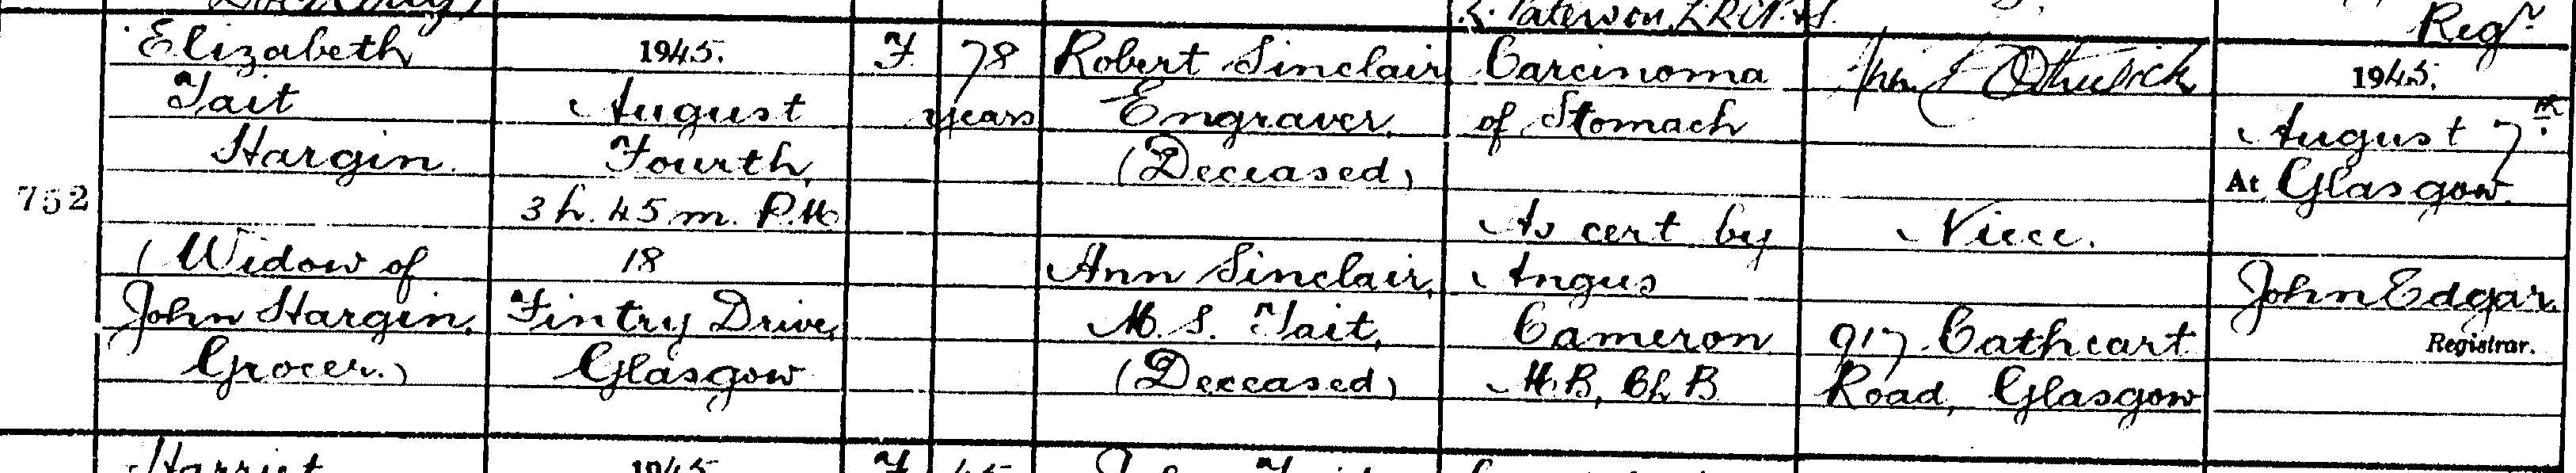 Regr
Elizabeth
Tait
Hargin.
752
(Widow of
John Hargin,
Grocer.)
1945.
August
Fourth,
3 h. 45 m. P.M.
18
Fintry Drive,
Glasgow
F.
78
years
Robert Sinclair
Engraver,
(Deceased)
Ann Sinclair,
M. S. Tait,
(Deceased)
Carcinoma
of Stomach
As cert by
Angus
Cameron
M.B, Ch B
Niece.
917 Cathcart
Road, Glasgow
1945.
August 7th
At Glasgow.
John Edgar.
Registrar.
Harriet
1945
F